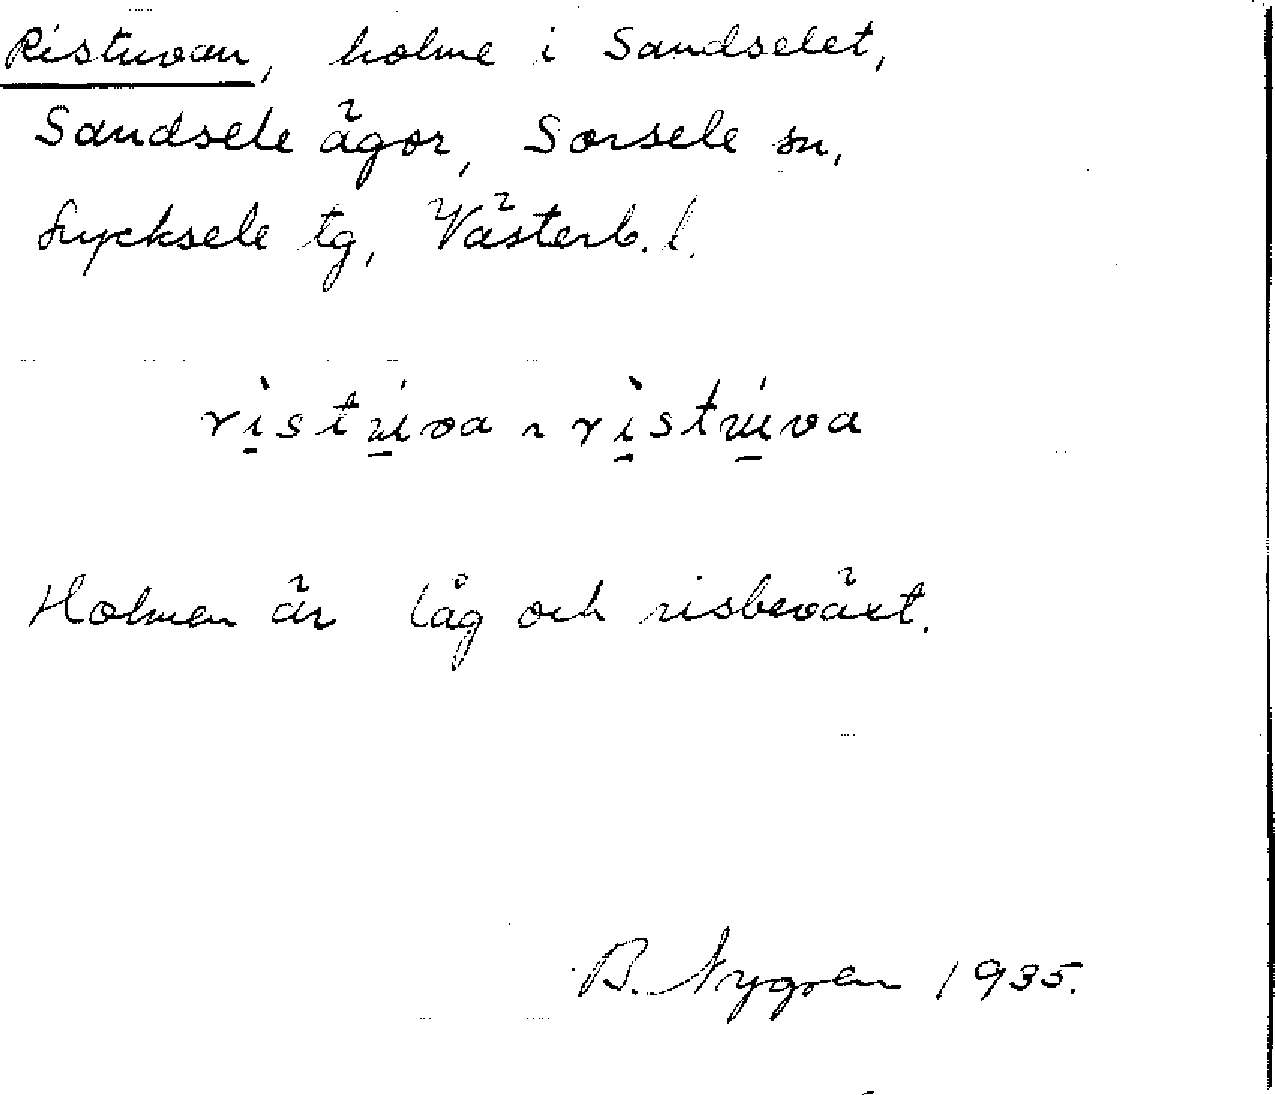 Ristuvan, holme i Sandselet,
Sandsele ägor, Sorsele sn,
Lycksele tg, Västerb. l.
rìstúva ~ rìstúva
Holmen är låg och risbeväxt.
B. Nygren 1935.